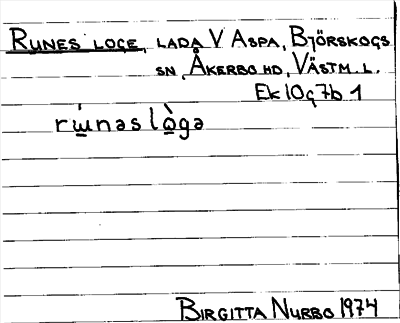 RUNES LOGE, LADA V ASPA, BJÖRSKOGS
SN, ÅKERBO HD, VÄSTM. L.
Ek 10g7b 1
rú̲nəs lò̲gə
BIRGITTA NURBO 1974